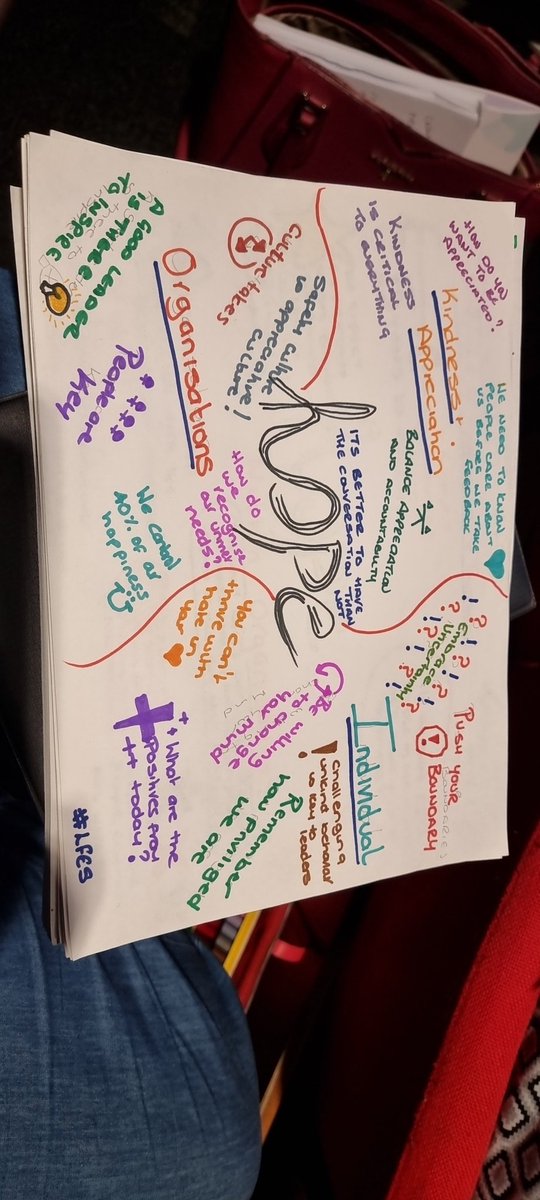 HOW DO YOU
WANT TO BE
APPRECIATED?
KINDNESS
IS CRITICAL
TO EVERYTHING
Kindness +
Appreciation
WE NEED TO KNOW
PEOPLE CARE ABOUT
US BEFORE WE TAKE
FEEDBACK
BALANCE APPRECIATION
AND ACCOUNTABILITY
ITS BETTER TO HAVE
THE CONVERSATION THAN
NOT
Hope
Embrace
Uncertainty
PUSH YOUR
BOUNDARY
Individual
challenging
unkind behaviour
is key to
leaders
Be willing
to change
your mind
Remember
how priviliged
we are
+ What are the
positives from
++ today?
#LFES
Culture takes
Safety culture
is appreciative
culture!
Organisations
A GOOD LEADER
IS THERE
TO INSPIRE
People are
Key
How do
we
recognise
our unmet
needs?
We control
40% of our
happiness
You can't
thrive with
hate in
your